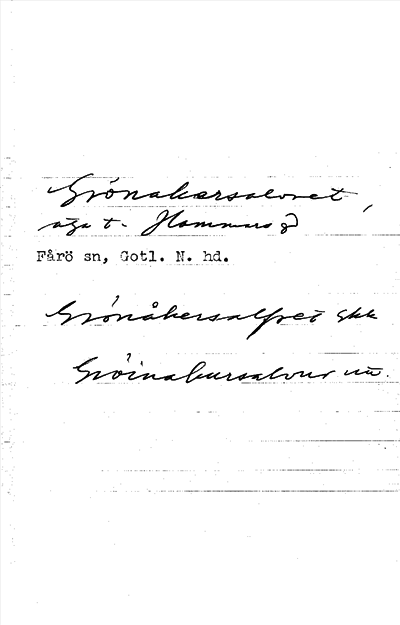 Grönakersalvret,
äga t. Hammars gd
Fårö sn, Gotl. N. hd.
Grönåkersalfret skk
Gröinakursalvur uu.